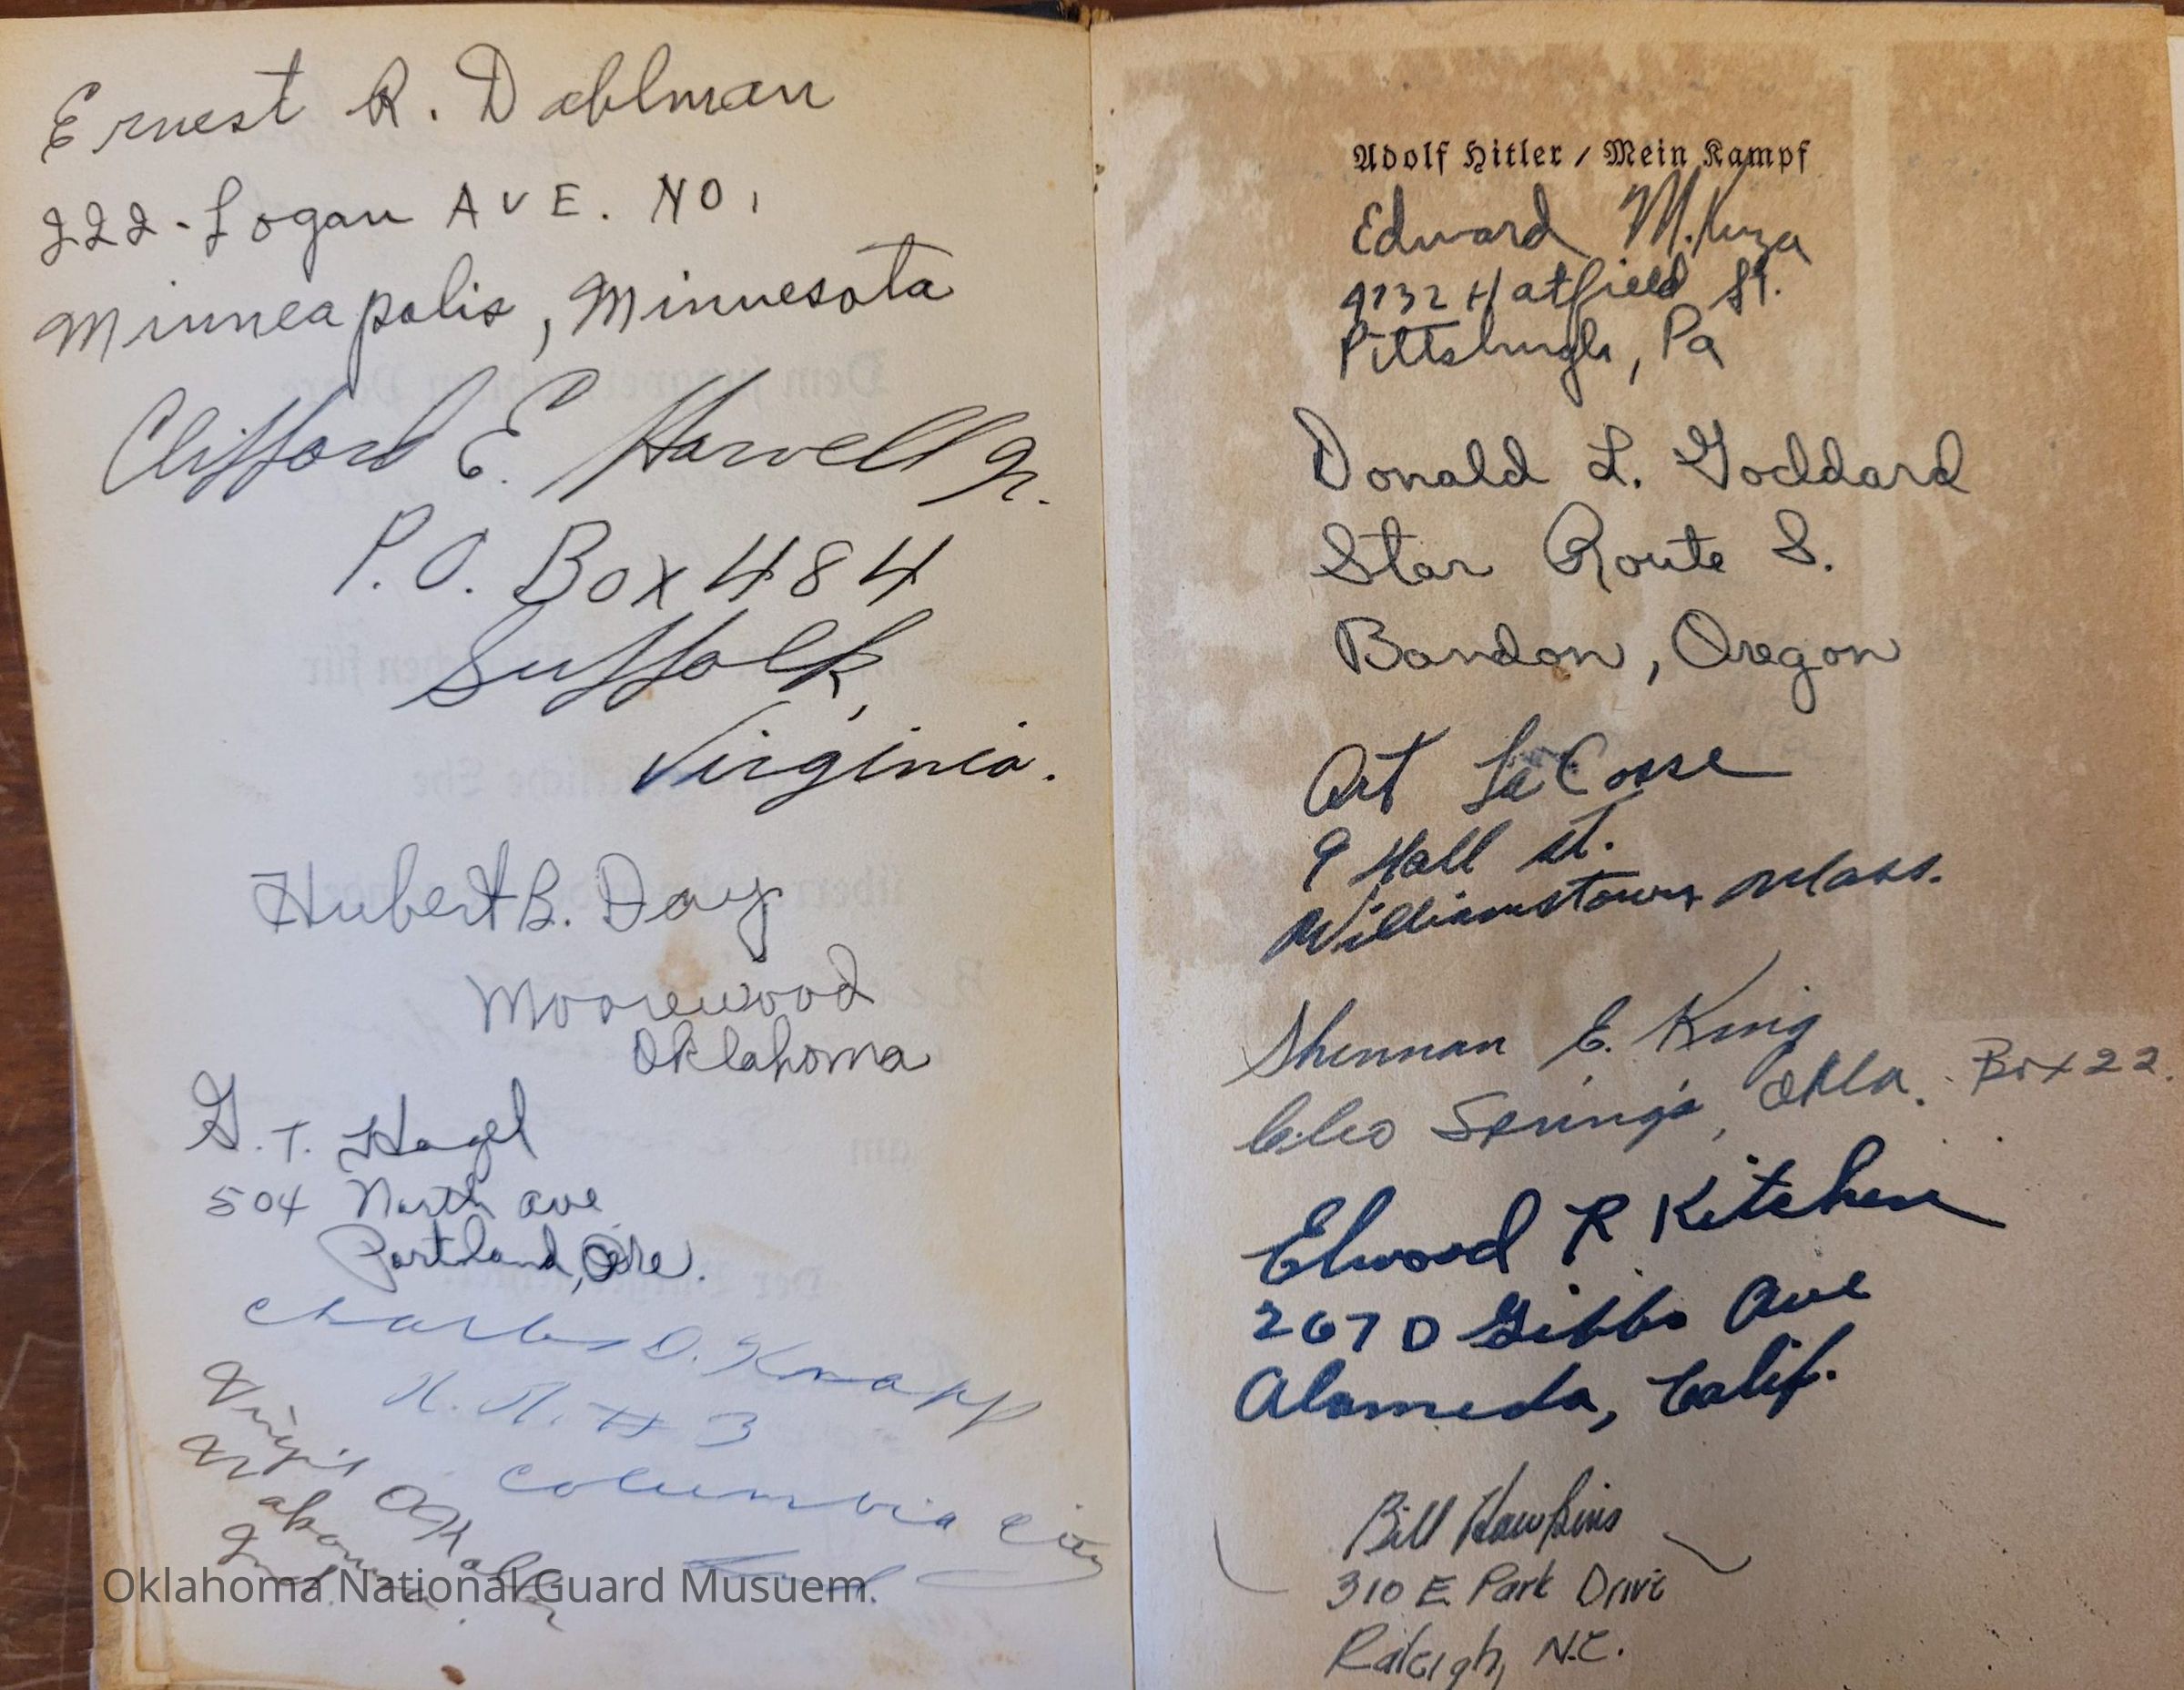 Ernest R. Dahlman
222-Logan AVE. NO.
Minneapolis, Minnesota
Clifford E. Harvell Jr.
P.O. Box 484
Suffolk,
Virginia.
Hubert B. Day
Moorewood
Oklahoma
G. T. Hagel
504 North ave
Portland, Ore.
Charles D. Knapp
R. R. # 3
Columbia City
Ind.
Virgil
Oklahoma National Guard Musuem.
Adolf Hitler / Mein Kampf
Edward M. Kuza
4732 Hatfield St.
Pittsburgh, Pa
Donald L. Goddard
Star Route S.
Bandon, Oregon
Art LaCosse
9 Hall st.
Williamstown Mass.
Sherman E. King
Cleo Springs, Okla. Box 22.
Elwood R Kitchen
267 D Gibbs Ave
Alameda, Calif.
Bill Hawkins
310 E. Park Drive
Raleigh, N.C.